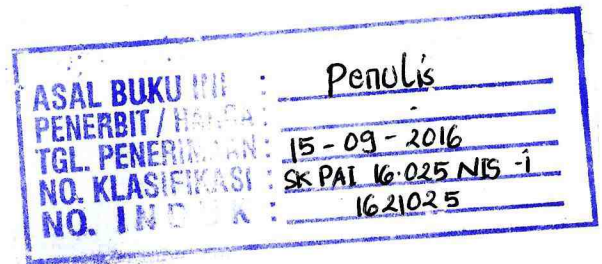 ASAL BUKU INI : Penulis
PENERBIT / HARGA : -
TGL. PENERIMAAN : 15 - 09 - 2016
NO. KLASIFIKASI : SK PAI 16.025 NIS - i
NO. INDUK : 1621025